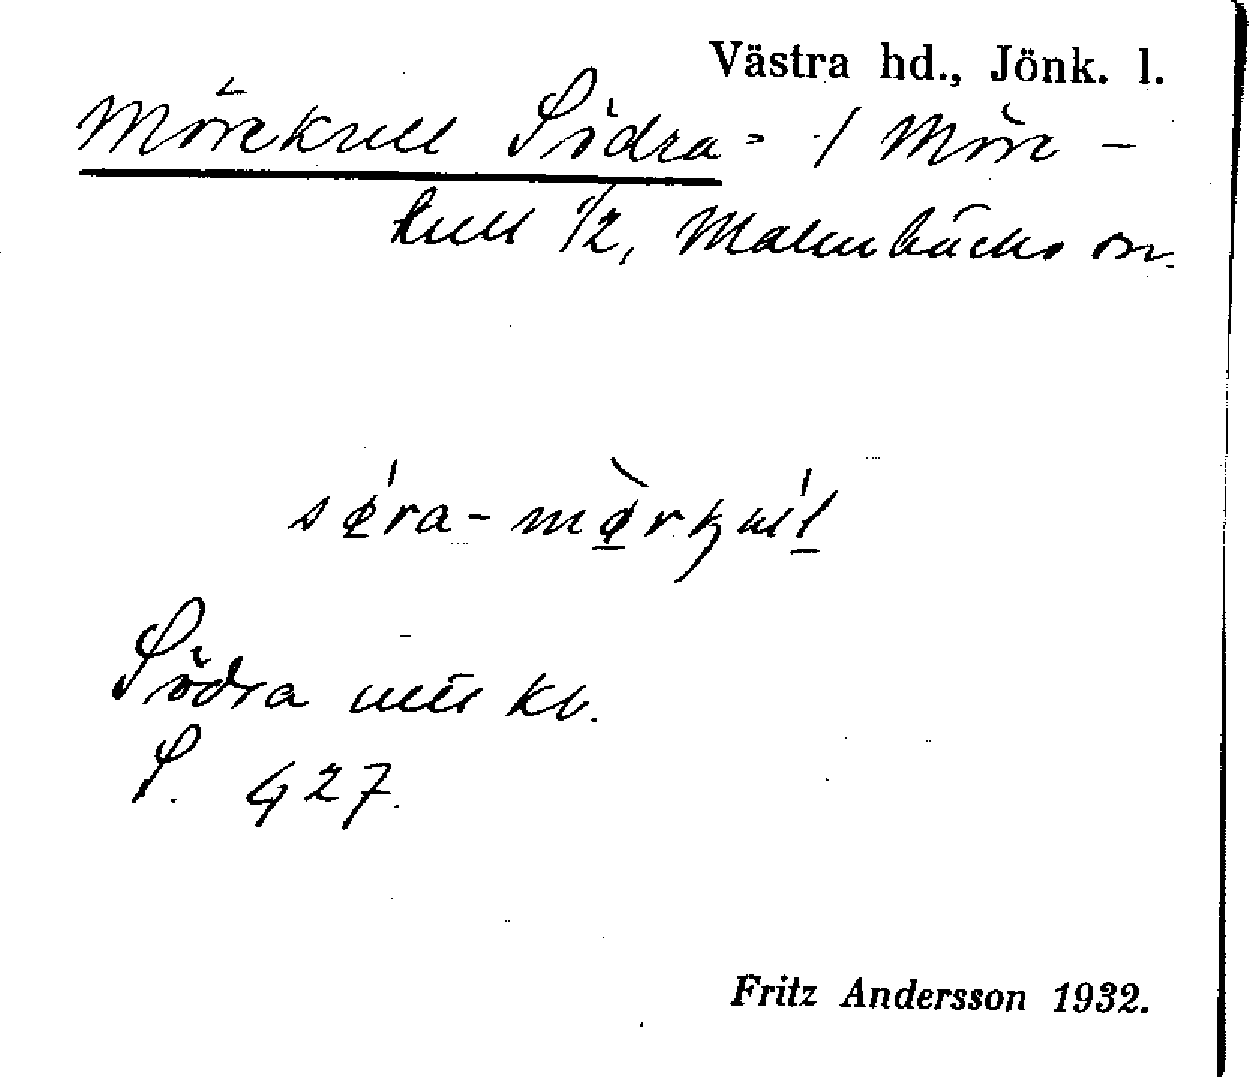 Västra hd., Jönk. l.
Mörekull Södra = / Möre-
kull 1/2, Malmbäcks sn.
sø̀ra-mø̀rkul
Södra utt kb.
S. 427.
Fritz Andersson 1932.